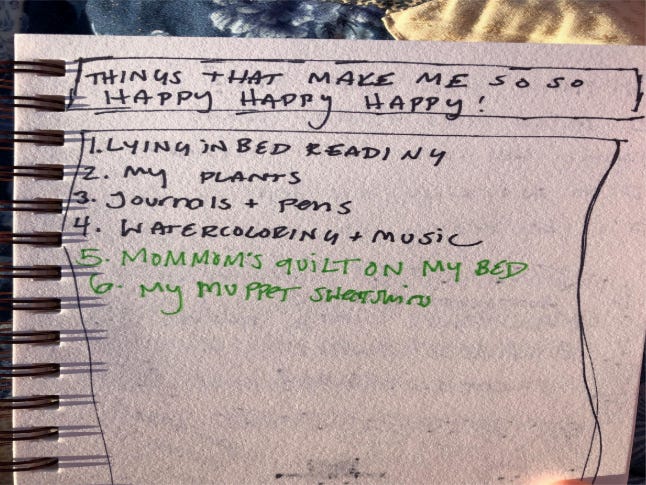 THINGS THAT MAKE ME SO SO
HAPPY HAPPY HAPPY!
1. LYING IN BED READING
2. MY PLANTS
3. JOURNALS + PENS
4. WATERCOLORING + MUSIC
5. MOMMOM'S QUILT ON MY BED
6. MY MUPPET SWEATSHIRT